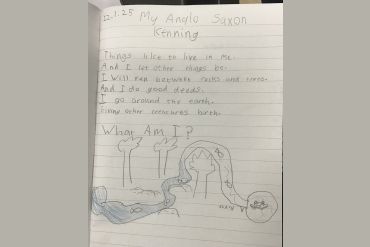 22.1.25 My Anglo Saxon
Kenning
Things like to live in me.
And I let other things be.
I will run between rocks and trees.
And I do good deeds.
I go around the earth.
other creatures birth.
What Am I?